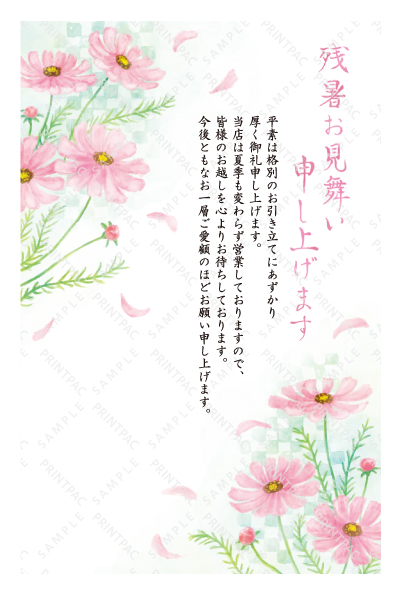 残暑お見舞い
申し上げます
平素は格別のお引き立てにあずかり
厚く御礼申し上げます。
当店は夏季も変わらず営業しておりますので、
皆様のお越しを心よりお待ちしております。
今後ともなお一層ご愛顧のほどお願い申し上げます。
PRINTPAC
SAMPLE